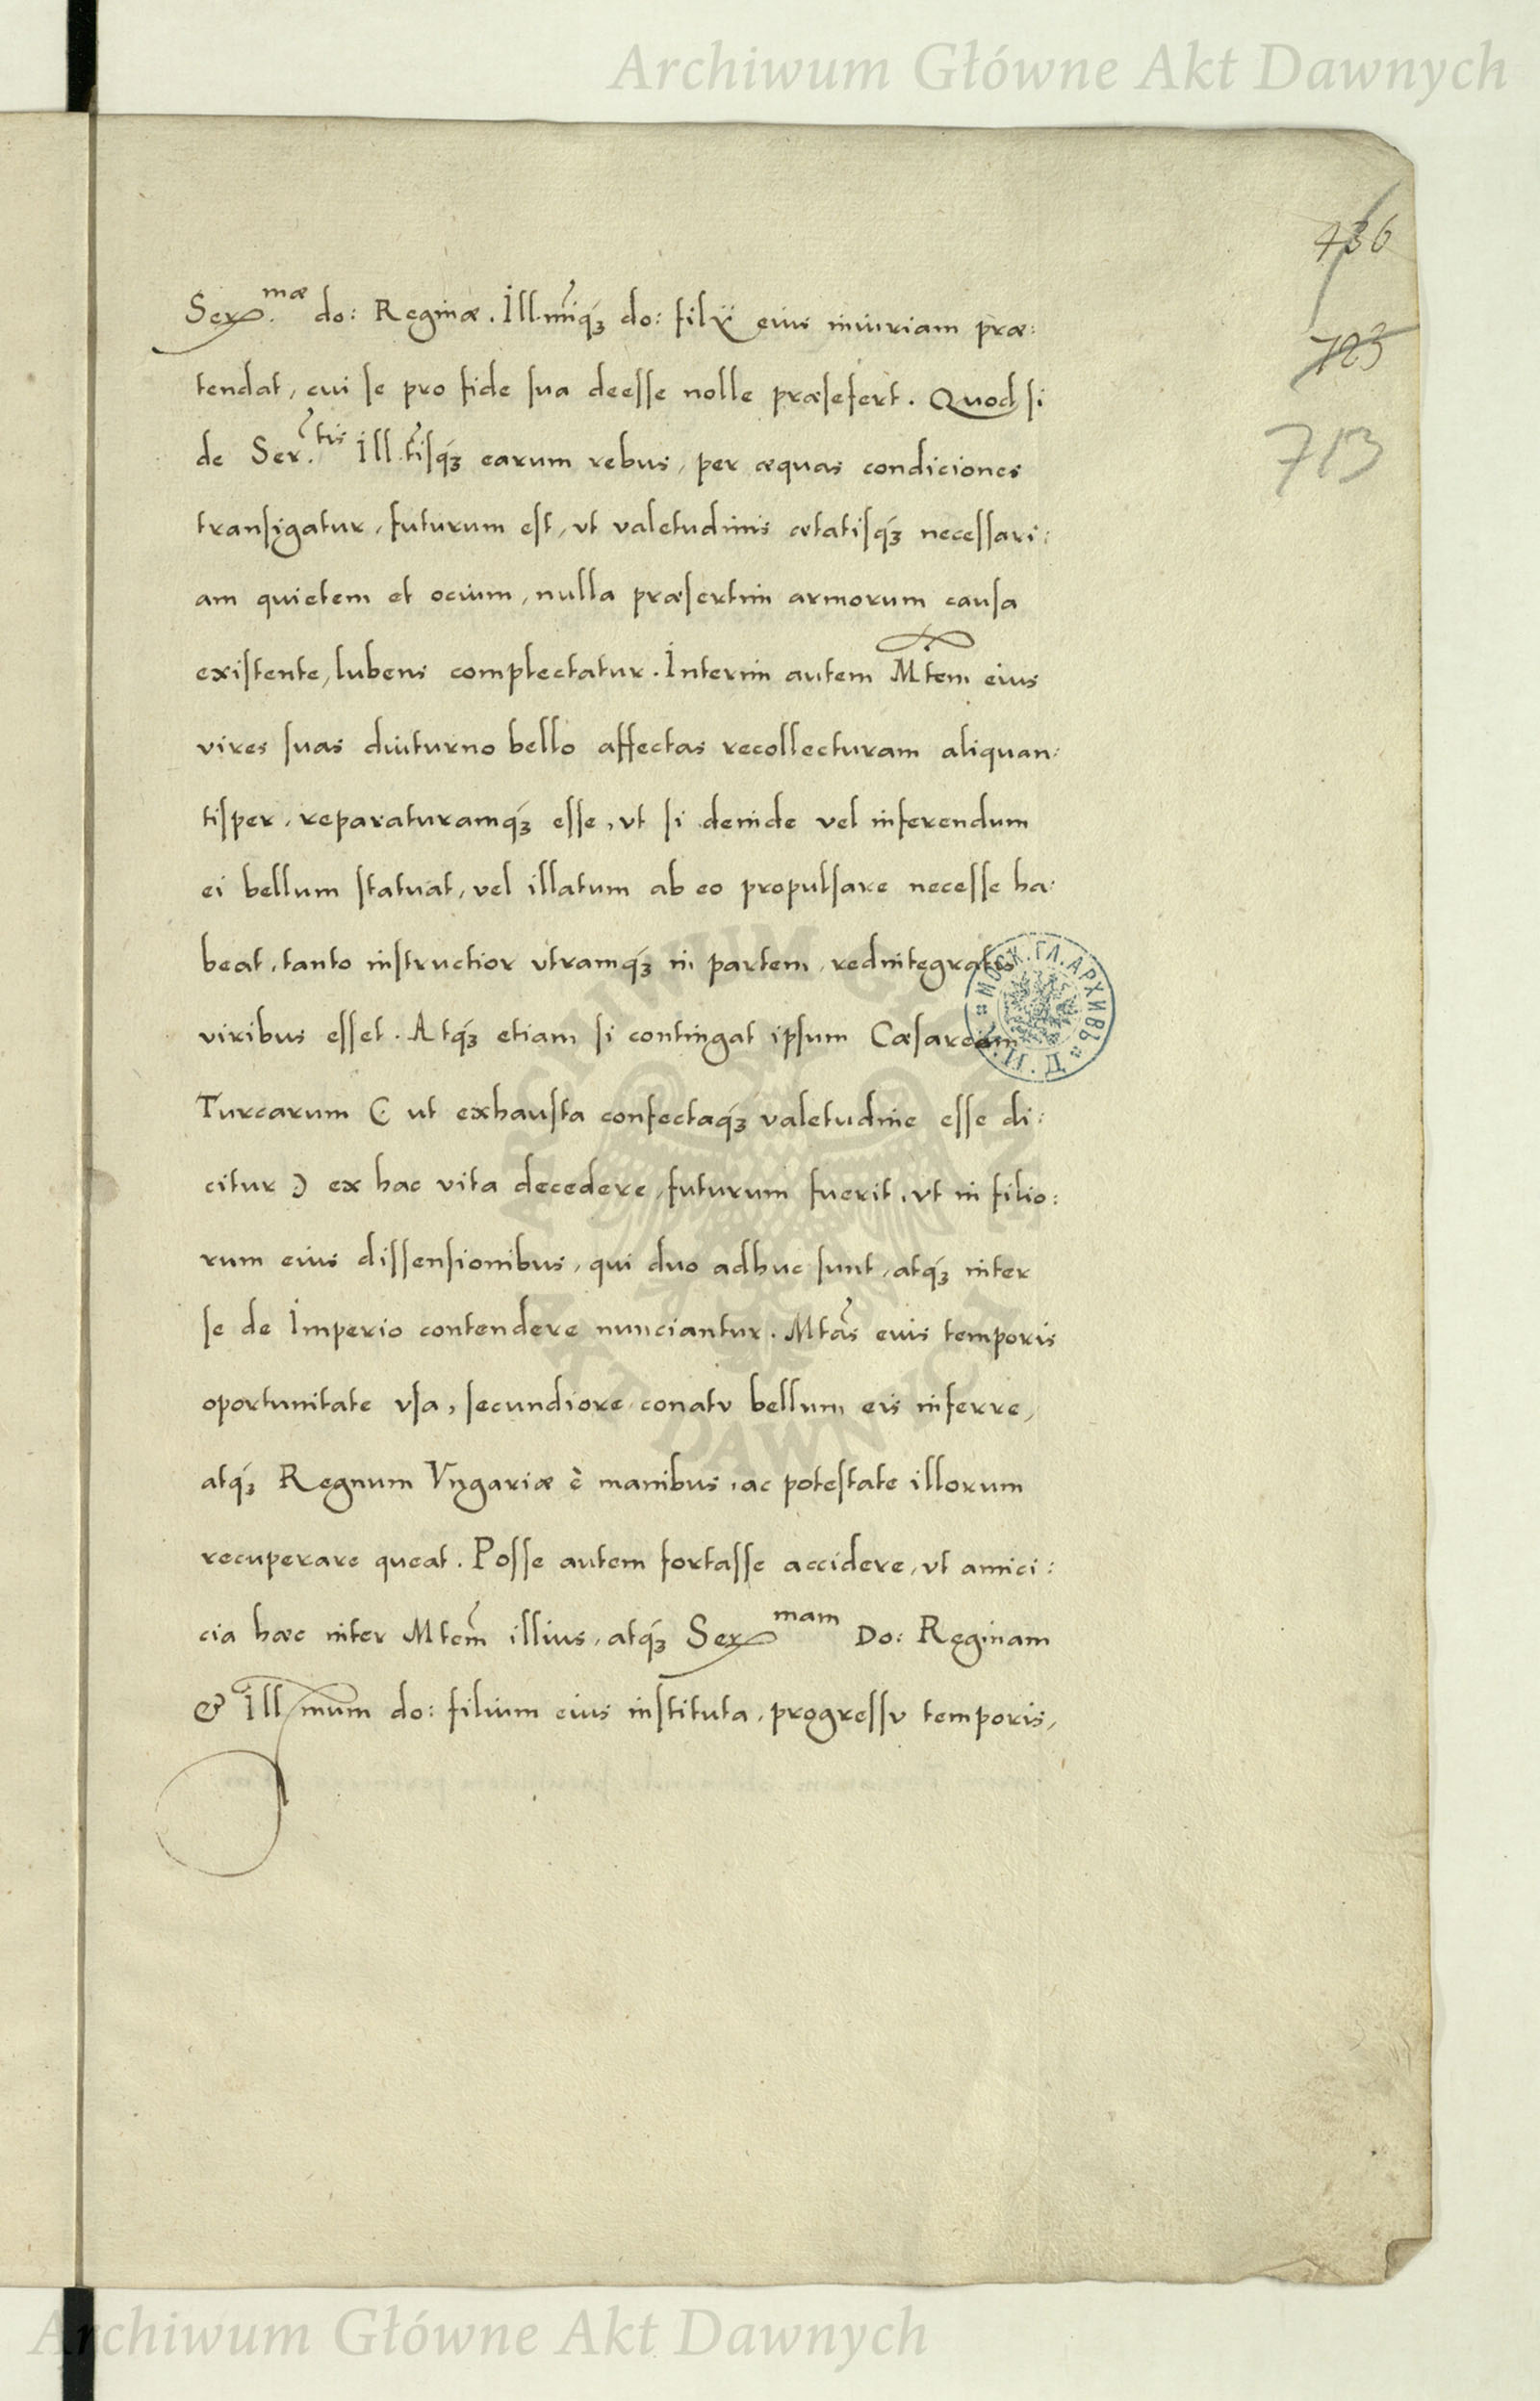 Archiwum Główne Akt Dawnych
436
703
713
Ser.mæ do: Reginæ. Ill.miq́ꝫ do: filÿ eius iniuriam præ:
tendat, cui se pro fide sua deesse nolle præsefert. Quod si
de Ser.tis Ill.tisq́ꝫ earum rebus, per æquas condiciones
transigatur, futurum est, vt valetudinis ætatisq́ꝫ necessari:
am quietem et ocium, nulla præsertim armorum causa
existente, lubens complectatur. Interim autem Mtem eius
vires suas diuturno bello affectas recollecturam aliquan:
tisper, reparaturamq́ꝫ esse, vt si deinde vel inferendum
ei bellum statuat, vel illatum ab eo propulsare necesse ha:
beat, tanto instructior vtramq́ꝫ in partem, redintegratis
viribus esset. Atq́ꝫ etiam si contingat ipsum Cæsarem
Turcarum ( ut exhausta confectaq́ꝫ valetudine esse di:
citur ) ex hac vita decedere, futurum fuerit, vt in filio:
rum eius dissensionibus, qui duo adhuc sunt, atq́ꝫ inter
se de Imperio contendere nunciantur. Mtas euis temporis
oportunitate vsa, secundiore conatu bellum eis inferre,
atq́ꝫ Regnum Vngariæ è manibus, ac potestate illorum
recuperare queat. Posse autem fortasse accidere, vt amici:
cia hæc inter Mtem illius, atq́ꝫ Ser.mam Do: Reginam
& Illmum do: filium eius instituta, progressu temporis,
МОСК. ГЛ. АРХИВЪ М. И. Д.
ARCHIWUM GŁÓWNE AKT DAWNYCH
Archiwum Główne Akt Dawnych